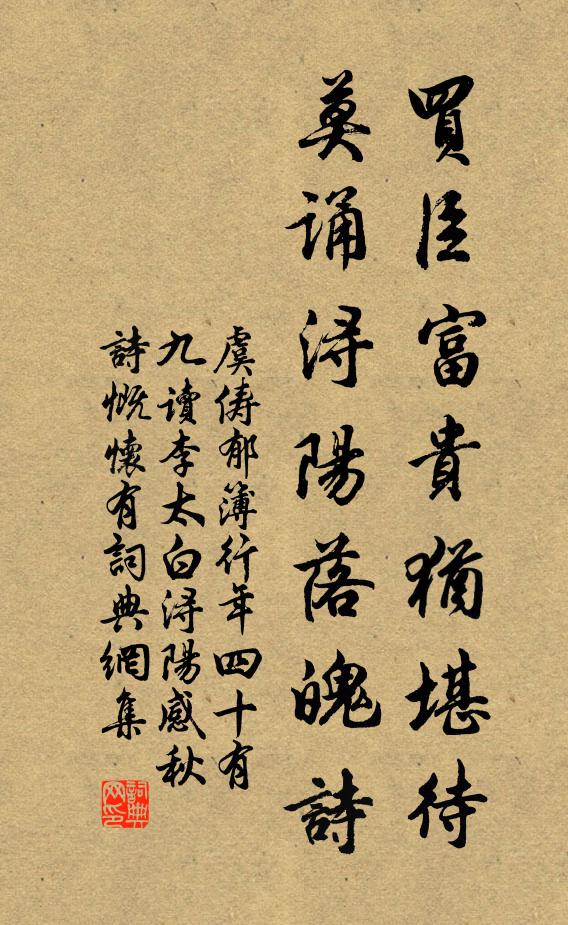 買臣富貴猶堪待
莫诵浔陽落魄詩
虞俦郁簿行年四十有
九读李太白浔陽感秋
詩慨懷有詞典網集
詞典
网印